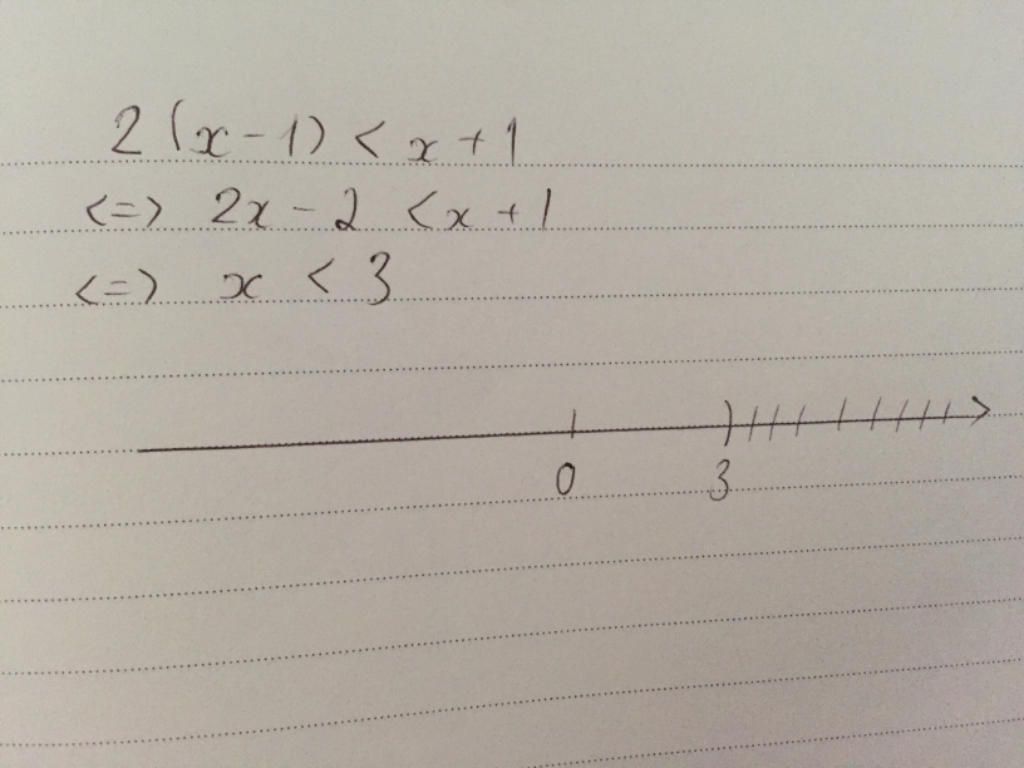 2(x-1) < x+1
<=> 2x-2 < x+1
<=> x < 3
0 3